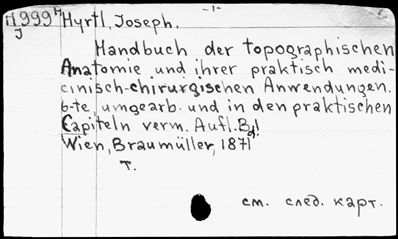 - 1 -
H 999 H Hyrtl, Joseph.
J
Handbuch der topographischen
Anatomie und ihrer praktisch medi-
cinisch-chirurgischen Anwendungen.
6-te, umgearb. und in den praktischen
Capiteln verm. Aufl. Bd 1.
Wien, Braumüller, 1871
T.
см. след. карт.